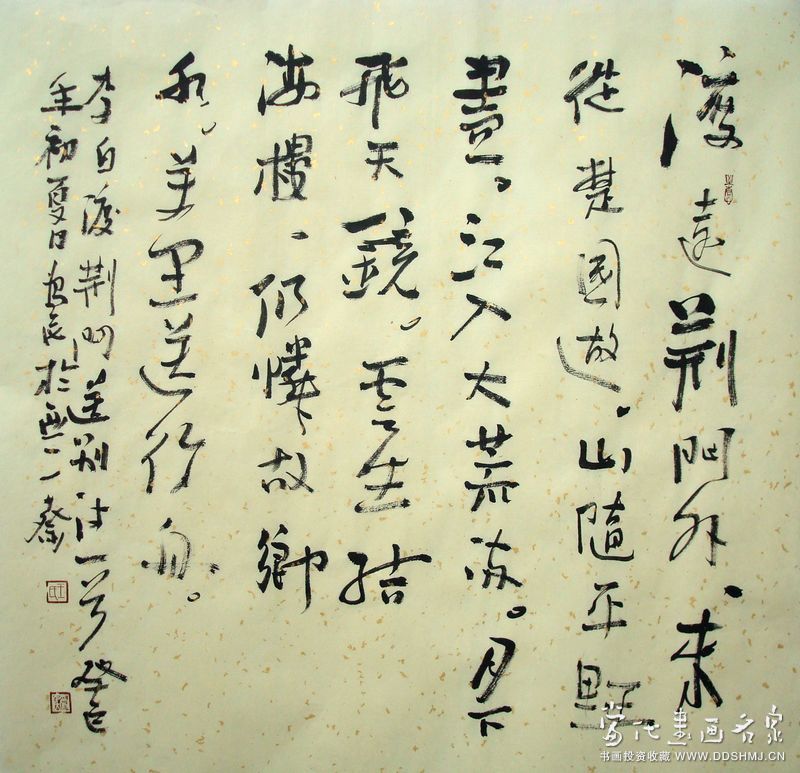 渡遠荆門外、来
從楚國遊。山隨平野
盡。江入大荒流。月下
飛天鏡。雲生結
海樓、仍憐故鄉
水。萬里送行舟。
李白渡荆門送别诗一首 癸巳
年初夏日 於 一齋
當代書画名家
书画投资收藏 WWW.DDSHMJ.CN